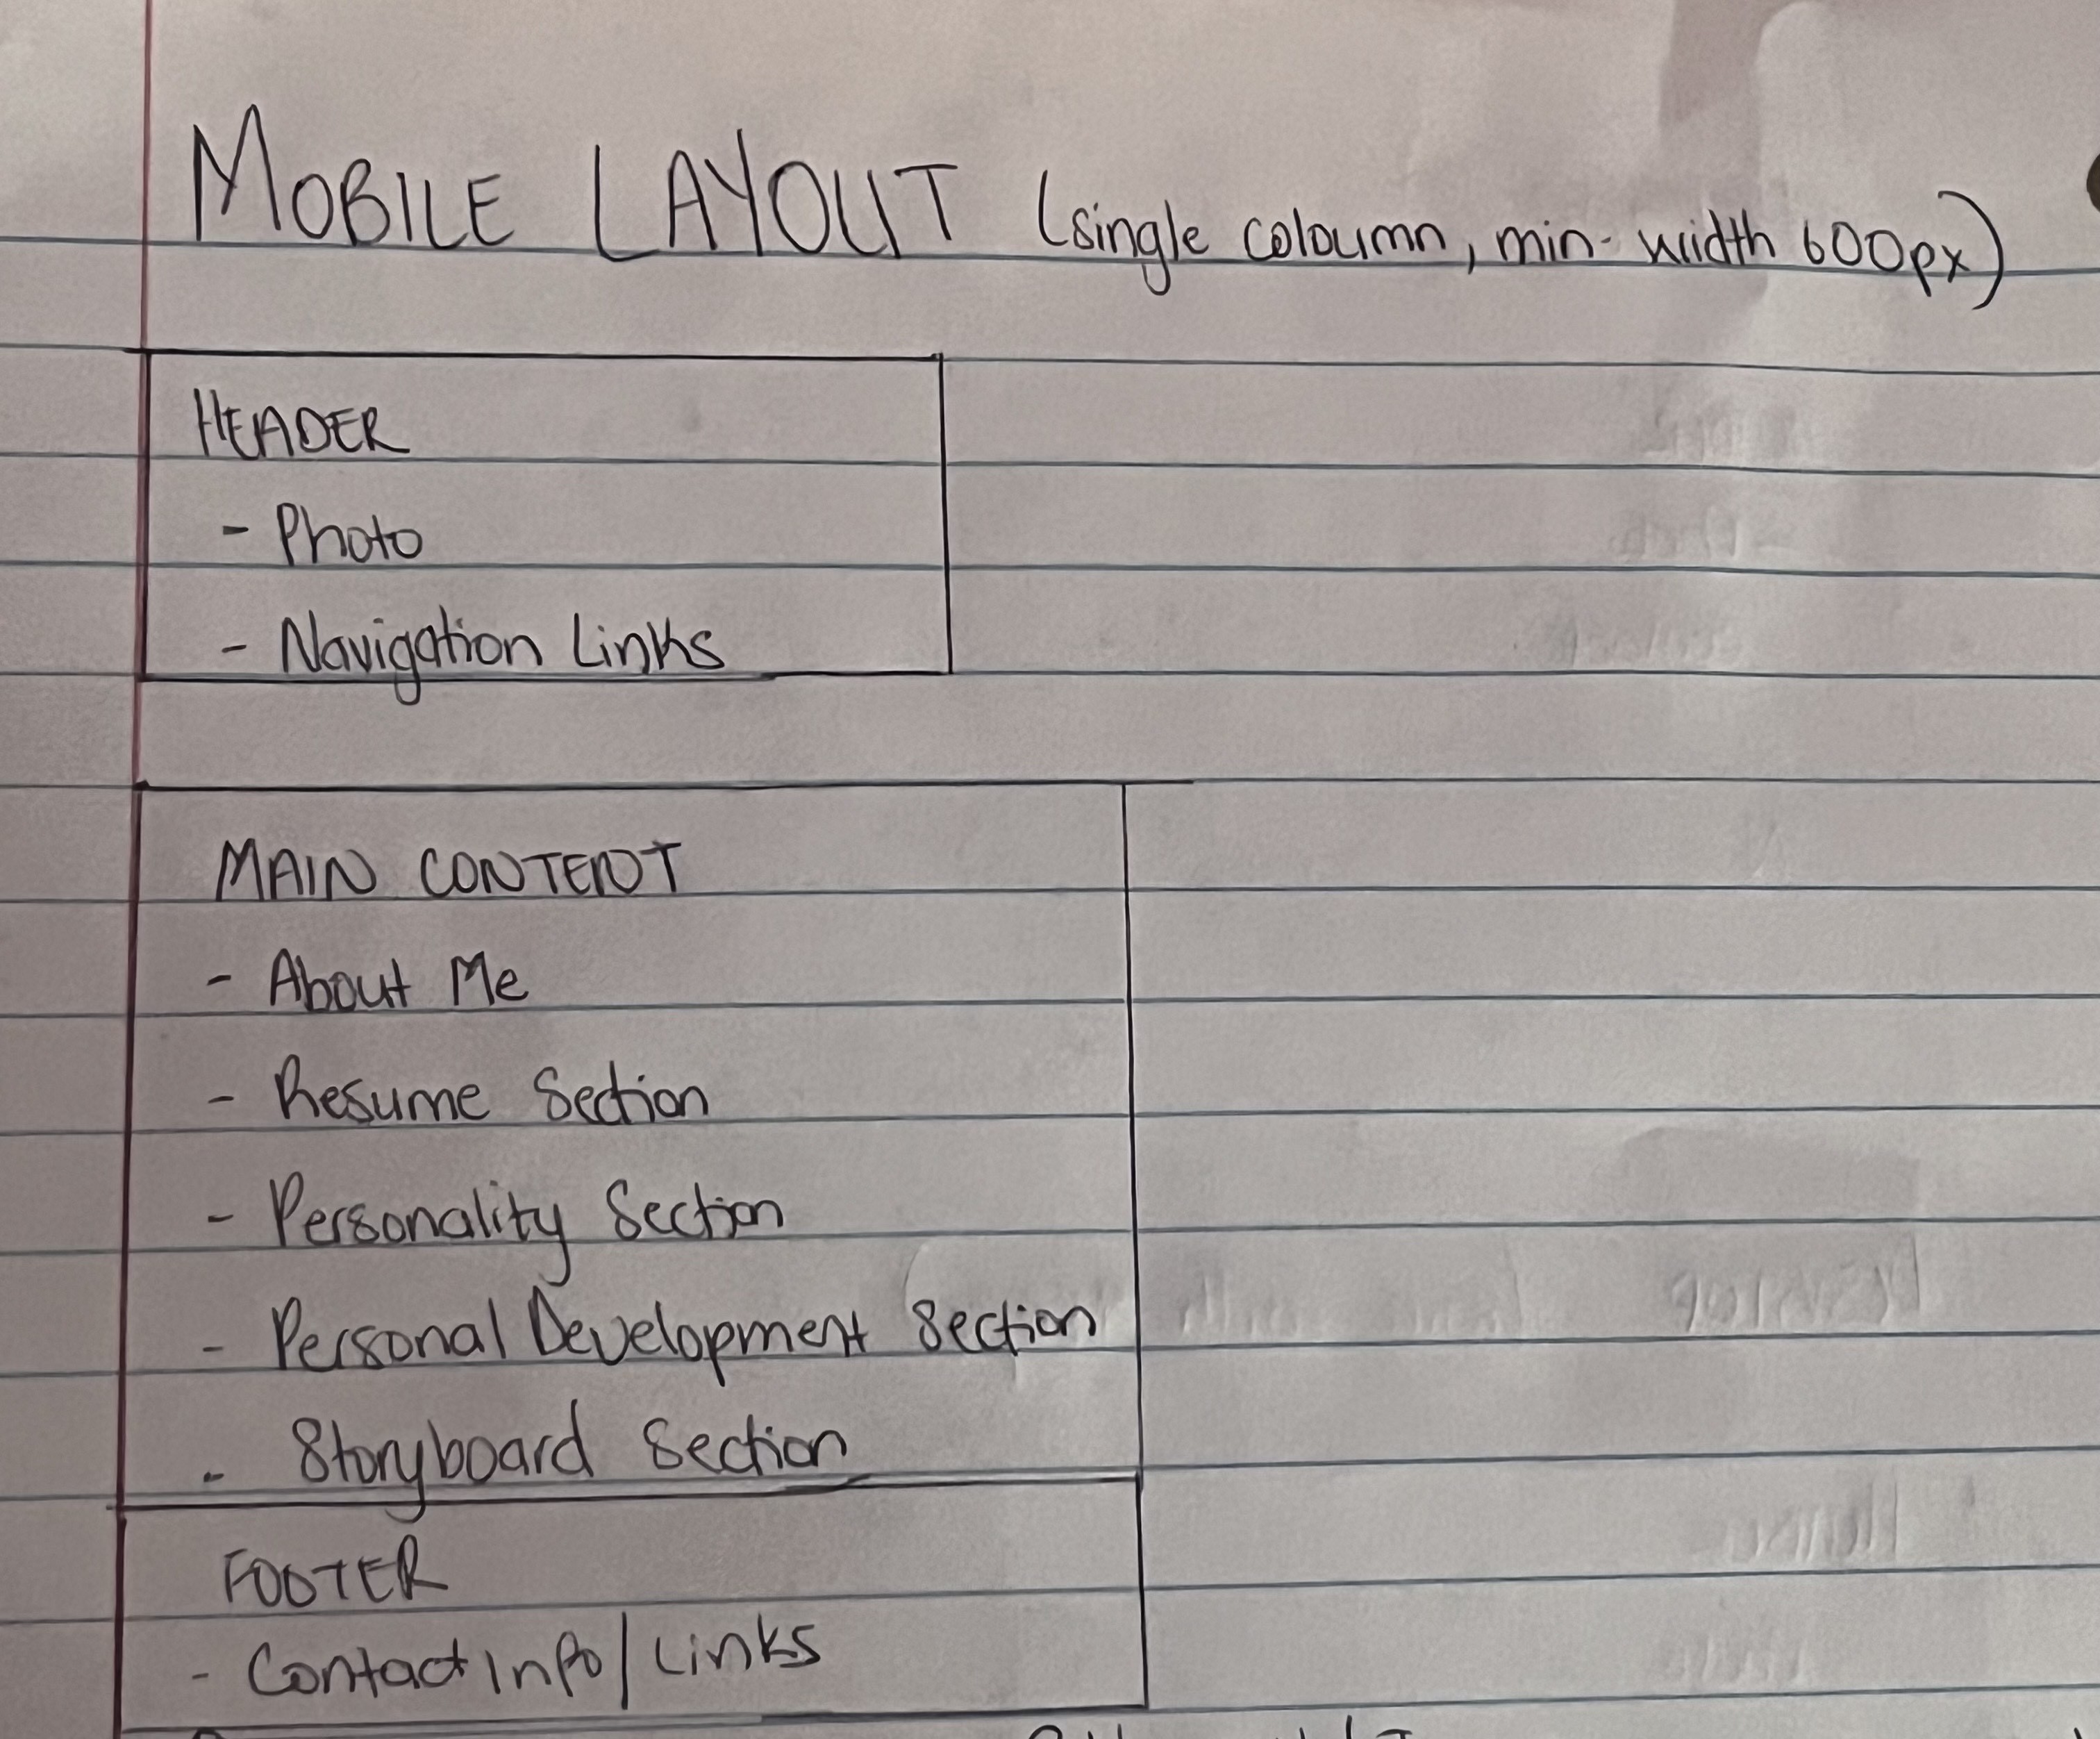 MOBILE LAYOUT (single coloumn, min-width 600px)
HEADER
- Photo
- Navigation Links
MAIN CONTENT
- About Me
- Resume Section
- Personality Section
- Personal Development Section
- Storyboard Section
FOOTER
- Contact Info/Links